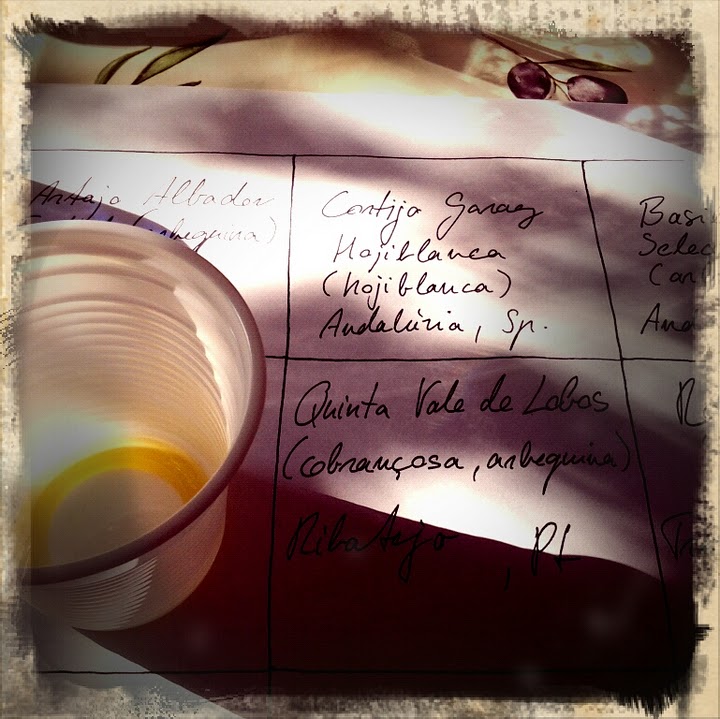 Albador
(arbequina)
Cortijo Garay
Hojiblanca
(hojiblanca)
Andalúzia, Sp.
Basi
Selec
(
And
Quinta Vale de Lobos
(cobrançosa, arbequina)
Ribatejo, Pt
R